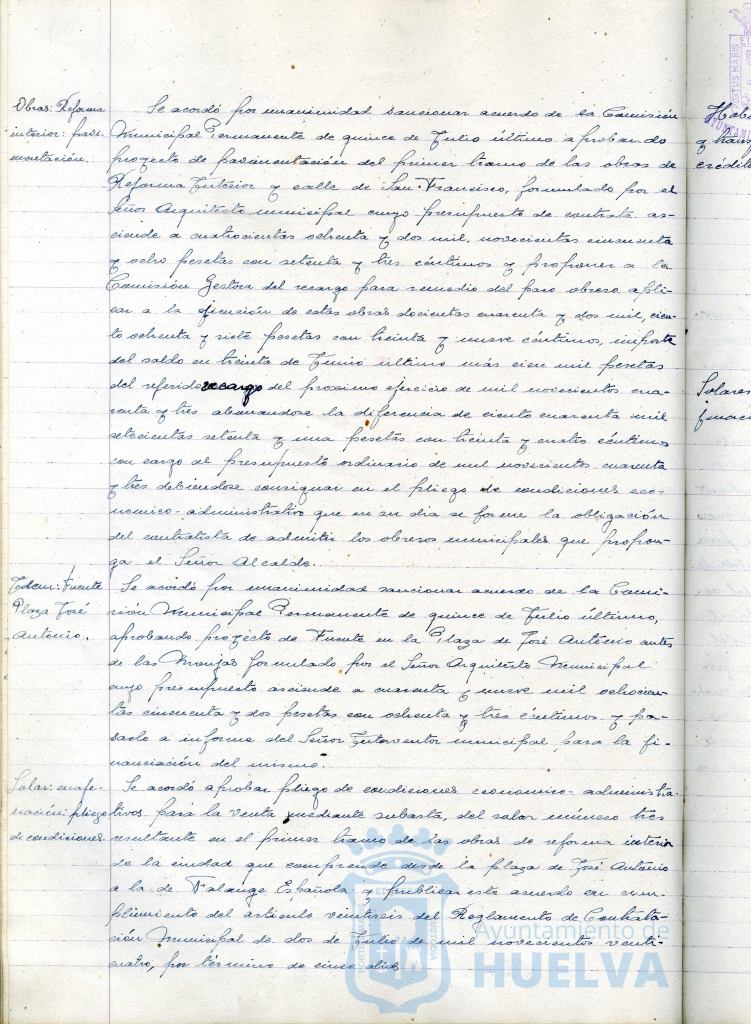 Obras: Reforma
interior: pavi-
mentación.
Se acordó por unanimidad sancionar acuerdo de la Comisión
Municipal Permanente de quince de Julio último aprobando
proyecto de pavimentación del primer tramo de las obras de
Reforma Interior y calle de San Francisco, formulado por el
Señor Arquitecto municipal cuyo presupuesto de contrata as-
ciende a cuatrocientas ochenta y dos mil, novecientas cincuenta
y ocho pesetas con setenta y tres céntimos y proponer a la
Comisión Gestora del recargo para remedio del paro obrero apli-
car a la ejecución de estas obras docientas cuarenta y dos mil, cien-
to ochenta y siete pesetas con treinta y nueve céntimos, importe
del saldo en treinta de Junio último más cien mil pesetas
del referido recargo del proximo ejercicio de mil novecientos cua-
renta y tres abonandose la diferencia de ciento cuarenta mil
setecientas setenta y una pesetas con treinta y cuatro céntimos
con cargo al presupuesto ordinario de mil novecientos cuarenta
y tres debiendose consignar en el pliego de condiciones eco-
nomico-administrativo que en su dia se forme la obligación
del contratista de admitir los obreros municipales que propon-
ga el Señor Alcalde.
Idem: Fuente
Plaza José
Antonio.
Se acordó por unanimidad sancionar acuerdo de la Comi-
sión Municipal Permanente de quince de Julio último,
aprobando proyecto de Fuente en la Plaza de José Antonio antes
de las Monjas formulado por el Señor Arquitecto Municipal
cuyo presupuesto asciende a cuarenta y nueve mil ochocien-
tas cincuenta y dos pesetas con ochenta y tres céntimos y pa-
sarlo a informe del Señor Interventor municipal para la fi-
nanciación del mismo.
Solar: enaje-
nación: pliego
de condiciones
Se acordó aprobar pliego de condiciones economico-administra-
tivas para la venta mediante subasta, del solar número tres
resultante en el primer tramo de las obras de reforma interior
de la ciudad que comprende desde la plaza de José Antonio
a la de Falange Española y publicar este acuerdo en cum-
plimiento del articulo veintiseis del Reglamento de Contrata-
ción Municipal de dos de Julio de mil novecientos veinti-
cuatro, por término de cinco dias
Ayuntamiento de
HUELVA
PORTUS MARIS
y trans
crédito
Solares